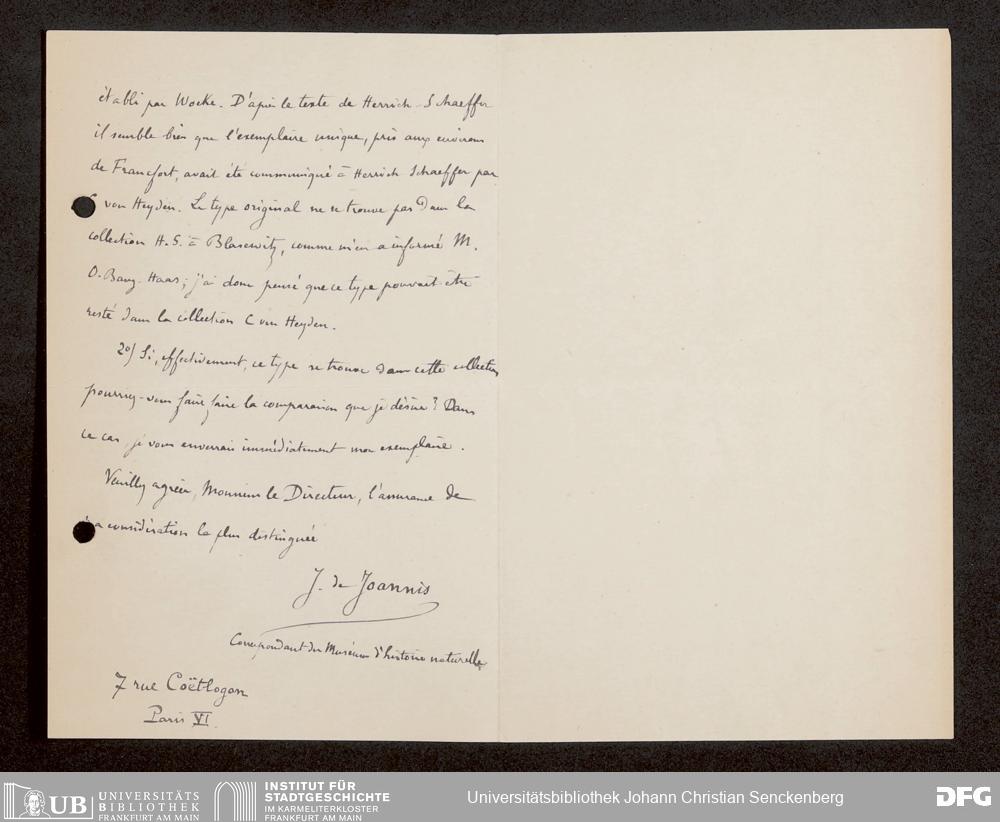 établi par Wocke. D'après le texte de Herrich-Schaeffer
il semble bien que l'exemplaire unique, pris aux environs
de Francfort, avait été communiqué à Herrich Schaeffer par
von Heyden. Le type original ne se trouve pas dans la
collection H.S. à Blasewitz, comme m'en a informé M.
O. Bang-Haas; j'ai donc pensé que ce type pouvait être
resté dans la collection C von Heyden.
2°/ Si, effectivement, ce type se trouve dans cette collection
pourriez-vous faire faire la comparaison que je désire? Dans
ce cas, je vous enverrai immédiatement mon exemplaire.
Veuillez agréer, Monsieur le Directeur, l'assurance de
ma considération la plus distinguée
J. de Joannis
Correspondant du Muséum d'histoire naturelle
7 rue Coëtlogon
Paris VI
UB UNIVERSITÄTS
BIBLIOTHEK
FRANKFURT AM MAIN
INSTITUT FÜR
STADTGESCHICHTE
IM KARMELITERKLOSTER
FRANKFURT AM MAIN
Universitätsbibliothek Johann Christian Senckenberg
DFG